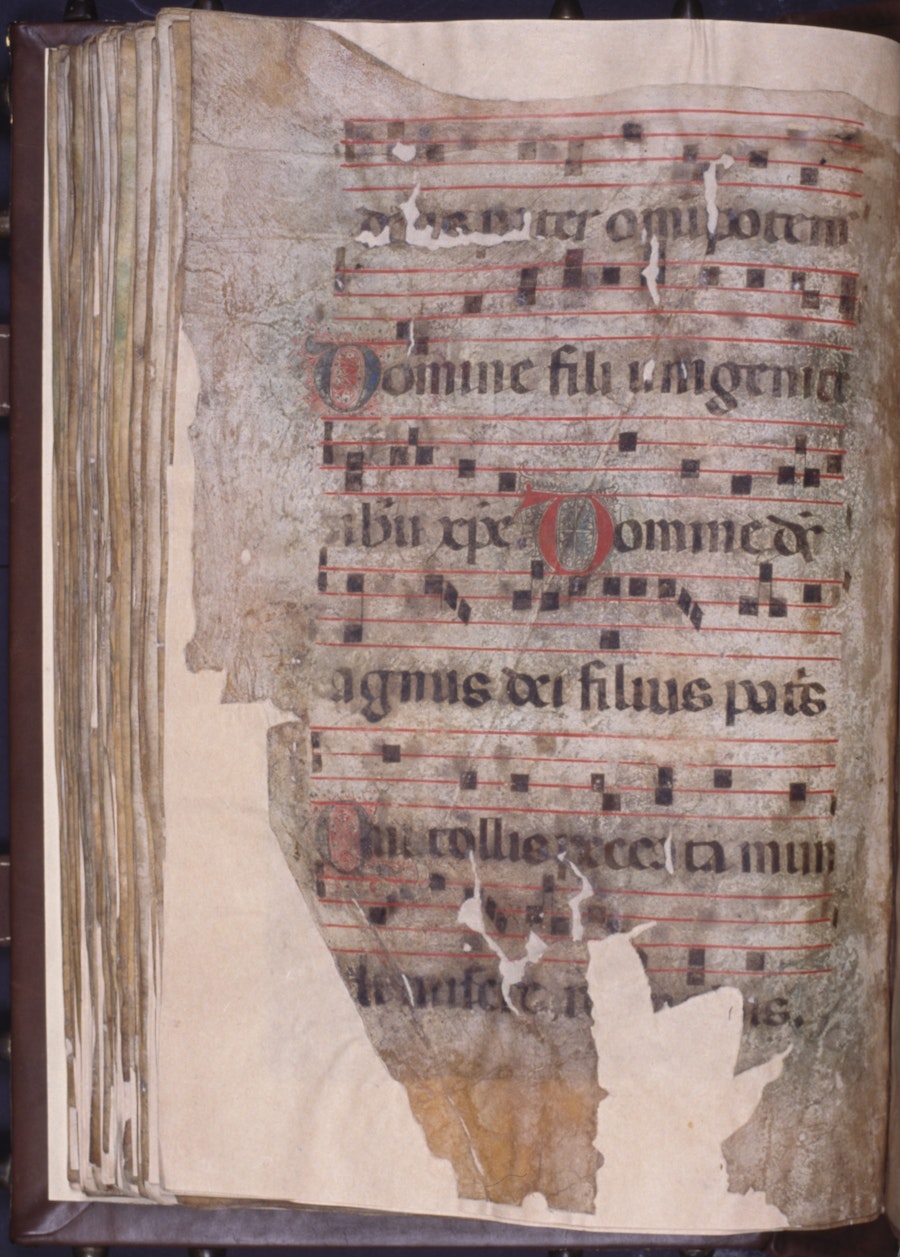 deus pater omnipotem
Domine fili unigenite
ihu xpe. Domine ds
agnus dei filius patis
Qui tollis pecca ta mun
di miserere, n is.